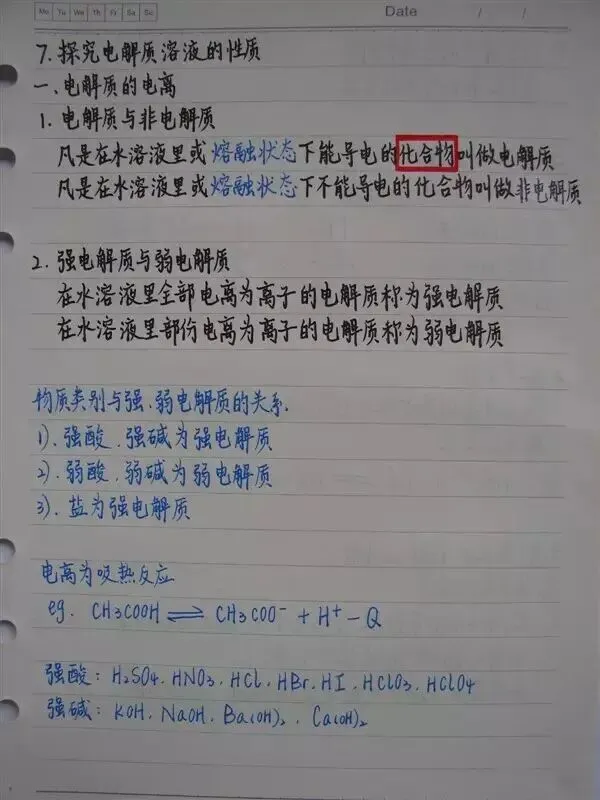 Mo Tu We Th Fr Sa Su
Date / /
7. 探究电解质溶液的性质
一、电解质的电离
1. 电解质与非电解质
凡是在水溶液里或熔融状态下能导电的化合物叫做电解质
凡是在水溶液里或熔融状态下不能导电的化合物叫做非电解质
2. 强电解质与弱电解质
在水溶液里全部电离为离子的电解质称为强电解质
在水溶液里部份电离为离子的电解质称为弱电解质
物质类别与强、弱电解质的关系.
1). 强酸、强碱为强电解质
2). 弱酸、弱碱为弱电解质
3). 盐为强电解质
电离为吸热反应
eg. CH3COOH ⇌ CH3COO⁻ + H⁺ - Q
强酸: H₂SO₄、HNO₃、HCl、HBr、HI、HClO₃、HClO₄
强碱: KOH、NaOH、Ba(OH)₂、Ca(OH)₂